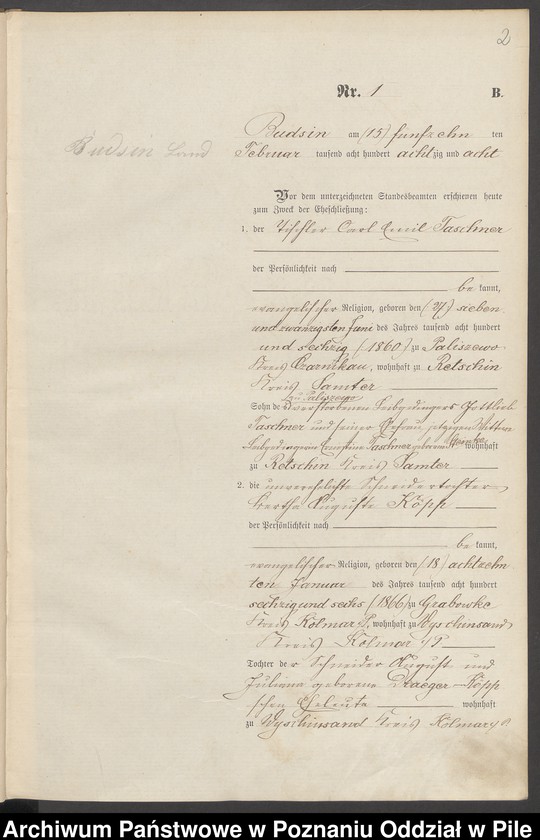 2
Nr. 1 B.
Budsin am (15) fünfzehn ten
Budsin Land
Februar tausend acht hundert achtzig und acht
Vor dem unterzeichneten Standesbeamten erschienen heute
zum Zweck der Eheschließung:
1. der Tischler Carl Emil Taschner
der Persönlichkeit nach
be kannt,
evangelischer Religion, geboren den (27) sieben
und zwanzigsten Juni des Jahres tausend acht hundert
und sechzig (1860) zu Paliszewo
Kreis Czarnikau, wohnhaft zu Retschin
Kreis Samter
zu Paliszewo
Sohn des verstorbenen Leibgedingers Gottlieb
Taschner und seiner Ehefrau, jetzigen Wittwe
Leibgedingerin Ernestine Taschner geborene wohnhaft
zu Retschin Kreis Samter
2. die unverehelichte Schneidertochter
Bertha Auguste Köpp
der Persönlichkeit nach
be kannt,
evangelischer Religion, geboren den (18) achtzehn
ten Januar des Jahres tausend acht hundert
sechzig und sechs (1866) zu Grabowke
Kreis Kolmar P, wohnhaft zu Wyschinsand
Kreis Kolmar P
Tochter der Schneider August und
Juliana geborene Draeger-Köpp
schen Eheleute wohnhaft
zu Wyschinsand Kreis Kolmar P
Archiwum Państwowe w Poznaniu Oddział w Pile